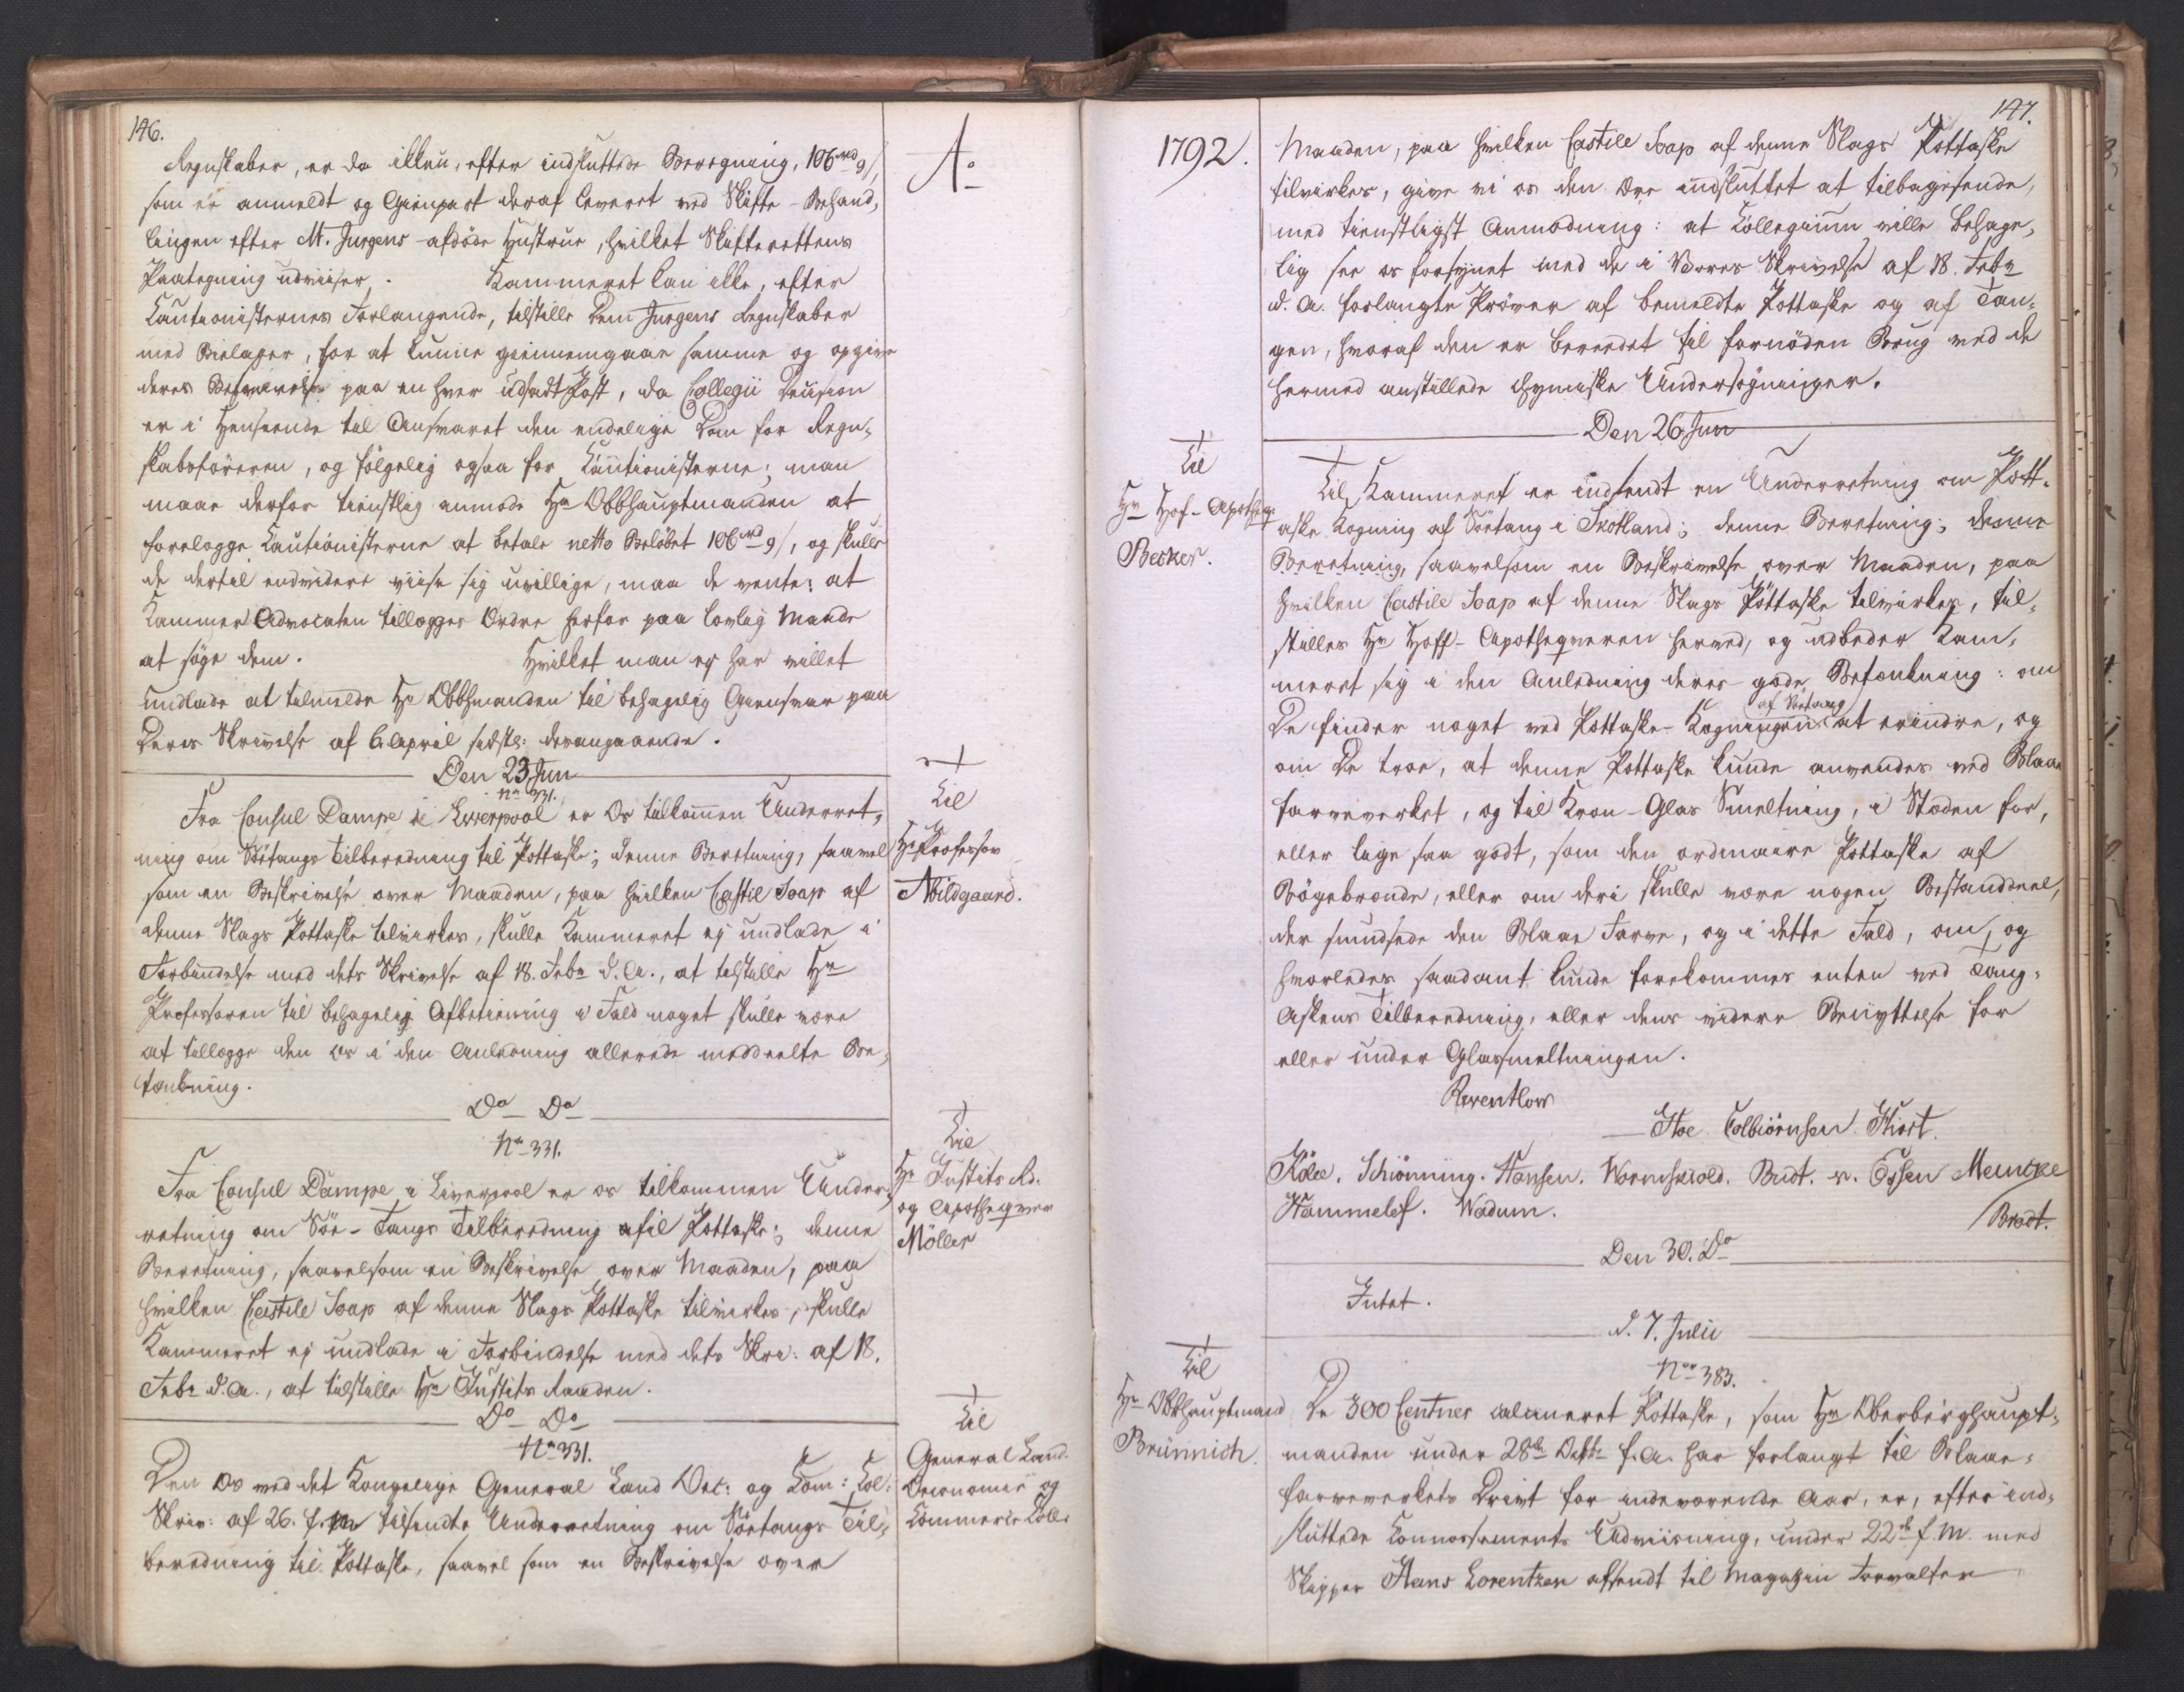 146.
Regnskaber, er da ikkun, efter indsluttede Beregning, 106 rd 9 s,
som er anmeldt og Gienpart deraf leveret ved Skifte-Behand-
lingen efter M. Jurgens afdøde Hustrue, hvilket Skifterettens
Paategning udviiser. Kammeret kan ikke, efter
Cautionisternes Forlangende, tilstille Dem Jurgens Regnskaber
med Bielager, for at kunne giennemgaae samme og opgive
deres Besvarelse paa en hver udsadt Post, da Collegii Decision
er i Henseende til Ansvaret den endelige Dom for Regn-
skabsføreren, og følgelig ogsaa for Cautionisterne; man
maae derfor tienstlig anmode Hr Obbhauptmanden at
forelægge Cautionisterne at betale netto Beløbet 106 rd 9 s, og skulle
de dertil endvidere viise sig uvillige, maa de vente: at
Kammer Advocaten tillægges Ordre herfor paa lovlig Maade
at søge dem. Hvilket man ej har villet
undlade at tilmelde Hr Obbhmanden til behagelig Giensvar paa
Deres Skrivelse af 6 April sidstl: desangaaende.
Den 23 Jun
No 331.
Fra Consul Dampe i Liverpool er Os tilkommen Underret-
ning om Söetangs Tilberedning til Pottaske; denne Beretning, saavel
som en Beskrivelse over Maaden, paa hvilken Castile Soap af
denne Slags Pottaske tilvirkes, skulle Kammeret ej undlade i
Forbindelse med dets Skrivelse af 18. Febr d. A., at tilstille Hr
Professoren til behagelig Afbetiening i Fald noget skulle være
at tillægge den os i den Anledning allerede meddeelte Be-
tænkning.
Do Do
No 331.
Fra Consul Dampe i Liverpool er os tilkommen Under-
retning om Söe-Tangs Tilberedning til Pottaske; denne
Beretning, saavelsom en Beskrivelse over Maaden, paa
hvilken Castile Soap af denne Slags Pottaske tilvirkes, skulle
Kammeret ej undlade i Forbindelse med dets Skri: af 18.
Febr d. A., at tilstille Hr Justits Raaden.
Do Do
No 331.
Den Os med det Kongelige General Land Oec: og Com: Col:
Skriv: af 26. f. M. tilsendte Underretning om Söetangs Til-
beredning til Pottaske, saavel som en Beskrivelse over
Ao
Til
Hr Professor
Abildgaard.
Til
Hr Justits Rd.
og Apothequer
Möller
Til
General Land
Oeconomie og
Commerce Coll:
1792.
147.
Maaden, paa hvilken Castile Soap af denne Slags Pottaske
tilvirkes, give vi os den Ære indsluttet at tilbagesende,
med tienstligst Anmodning: at Collegium ville behage-
lig see os forsynet med de i Vores Skrivelse af 18. Febr
d. A. forlangte Prøver af bemeldte Pottaske og af Tan-
gen, hvoraf den er beredet til fornøden Brug ved de
hermed anstillede chymiske Undersøgninger.
Den 26 Jun
Til
Hr Hof-Apotheqr
Becker.
Til Kammeret er indsendt en Underretning om Pott-
aske Kogning af Söetang i Skotland; denne Beretning, denne
Beretning, saavelsom en Beskrivelse over Maaden, paa
hvilken Castile Soap af denne Slags Pottaske tilvirkes, til-
stilles Hr Hoff-Apothequeren herved, og udbeder Kam-
meret sig i den Anledning deres gode Betænkning: om
De finder noget ved Pottaske-Kogningen af Söetang at erindre, og
om De troe, at denne Pottaske kunde anvendes ved Blaae
farveverket, og til Kron-Glas Smeltning, i Stæden for,
eller lige saa godt, som den ordinaire Pottaske af
Bögebrænde, eller om deri skulle være nogen Bestanddeel,
der smudsede den Blaae Farve, og i dette Fald, om, og
hvorledes saadant kunde forekommes enten ved Tang-
Askens Tilberedning, eller dens videre Benyttelse for
eller under Glassmeltningen.
Reventlow
Hoe Colbiörnsen Kiort.
Kölle. Schiönning. Hansen. Wormskiold. Budt. v. Essen Meincke
Hammelef. Wadum.
Bredt.
Den 30. Do
Intet.
d. 7. Julii
No 383.
Til
Hr Obbhauptmand
Brünnich.
De 300 Centner calcineret Pottaske, som Hr Oberberghaupt-
manden under 28de Octbr f. A. har forlangt til Blaae-
farveverkets Drivt for indeværende Aar, er, efter ind-
sluttede Connossements Udviisning, under 22de f. M. med
Skipper Hans Lorentzen afsendt til Magazin Forvalter